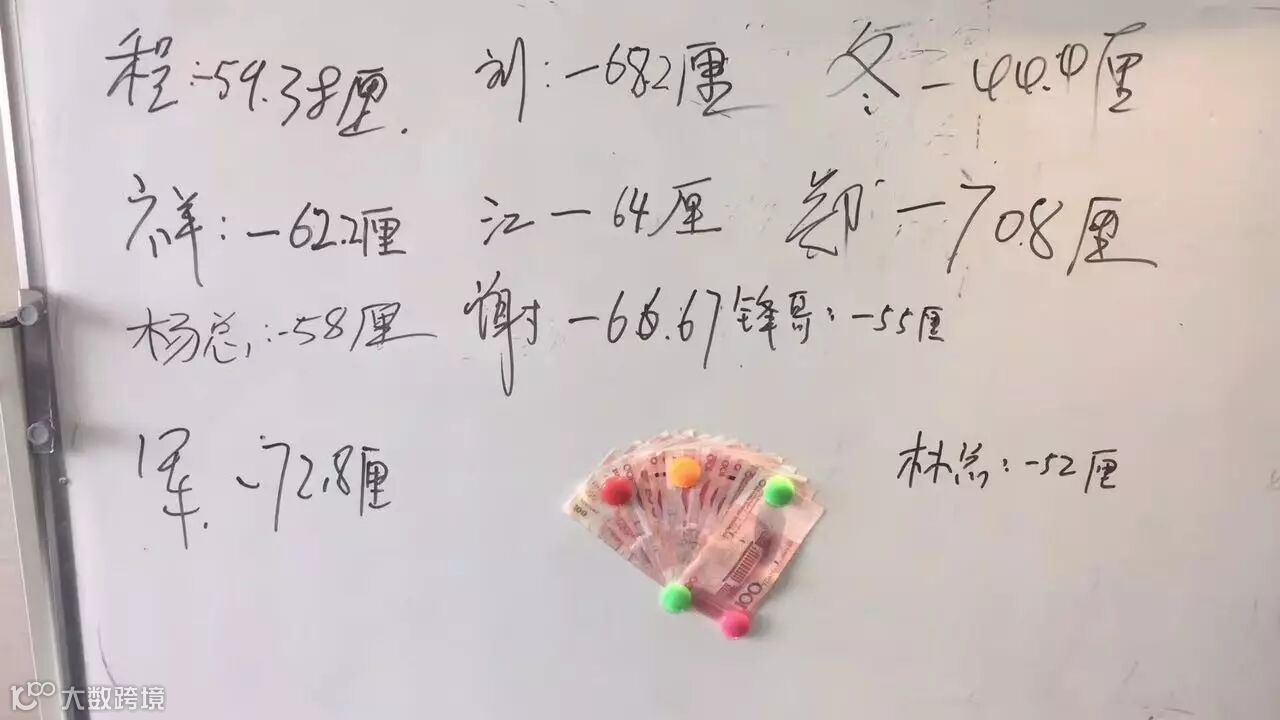 程:-59.38厘.
刘:-68.2厘
冬-44.4厘
祥:-62.2厘
江-64厘
郑-70.8厘
杨总:-58厘
谢-66.67
锋哥:-55厘
军.-72.8厘
林总:-52厘
100
100
大数跨境